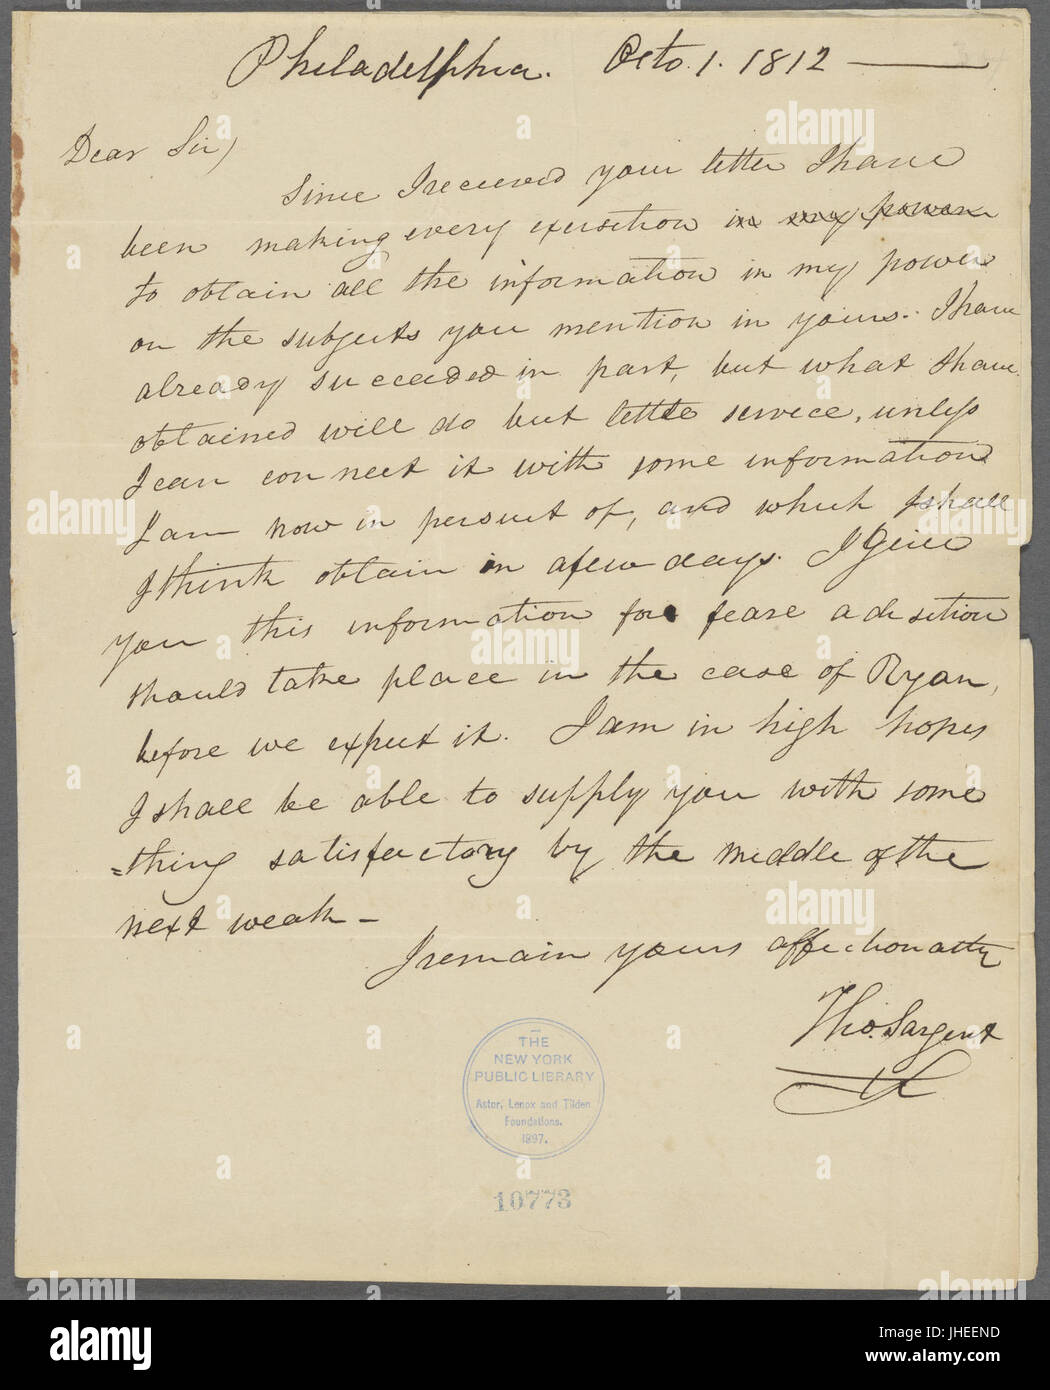 Philadelphia. Octo. 1. 1812
Dear Sir,
Since I received your letter I have
been making every exersition in my power
to obtain all the information in my power
on the subjects you mention in yours. I have
already succeeded in part, but what I have
obtained will do but little service, unless
I can connect it with some information
I am now in persuit of, and which I shall
I think obtain in a few days. I give
you this information for feare a desition
should take place in the case of Ryan,
before we expect it. I am in high hopes
I shall be able to supply you with some
=thing satisfactory by the middle of the
next weak –
I remain yours affectionately
Tho. Sargent
THE
NEW YORK
PUBLIC LIBRARY
Astor, Lenox and Tilden
Foundations.
1897.
10773
alamy
Image ID: JHEEND
www.alamy.com